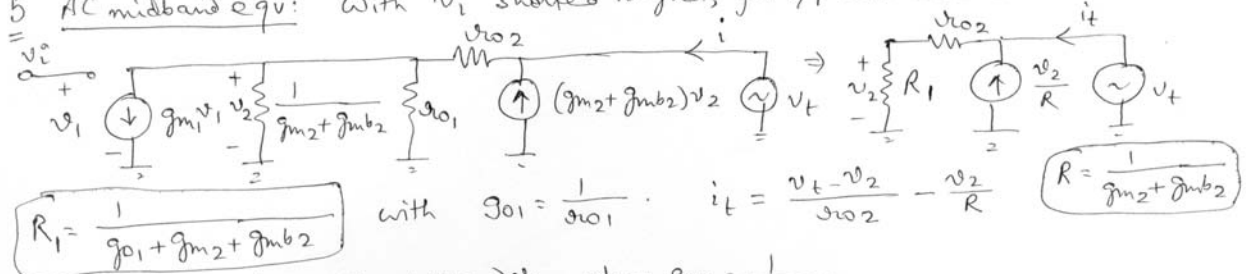 5 AC midband eqv: With v_i
=
v_i r_o2 i ⇒ r_o2 i_t
+ v_1 − g_m1 v_1 + v_2 − 1/(g_m2 + g_mb2) r_o1 (g_m2 + g_mb2)v_2 ~ v_t + v_2 − R_1 v_2/R ~ v_t
R_1 = 1/(g_o1 + g_m2 + g_mb2) with g_o1 = 1/r_o1 . i_t = (v_t − v_2)/r_o2 − v_2/R R = 1/(g_m2 + g_mb2)